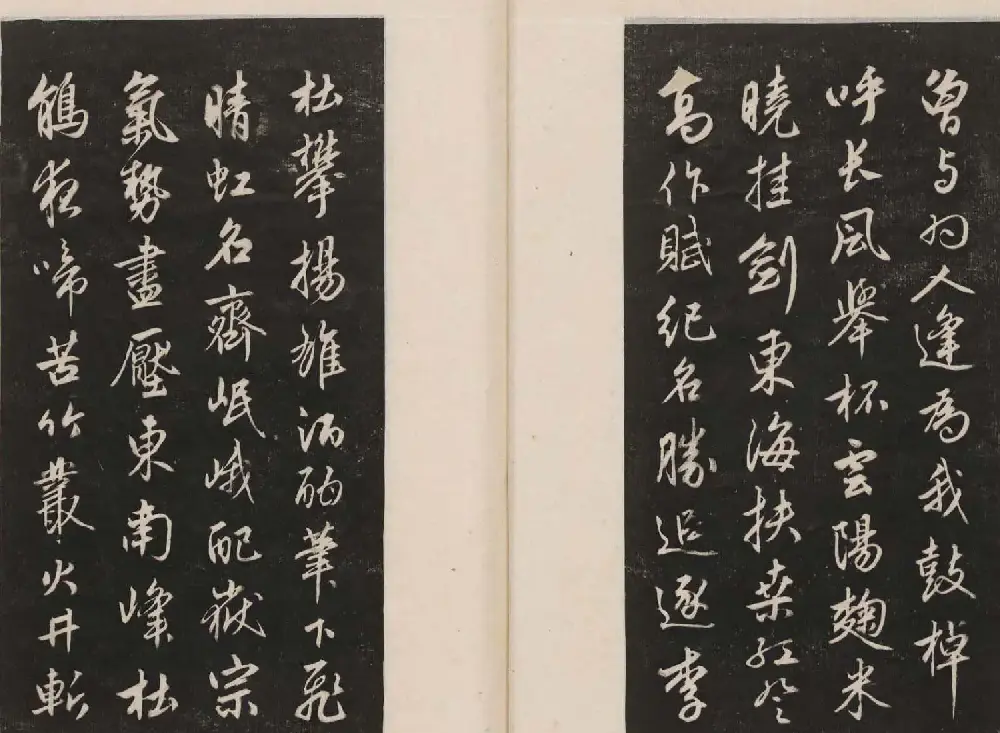 曾与為人逢為我鼓棹
呼长風舉杯雲陽麹米
曉挂劍東海扶桒紅登
高作賦紀名勝追逐李
杜攀揚雄酒酣筆下飛
晴虹名齊岷峨配嶽宗
氣勢盡壓東南峰杜
鵑夜啼苦竹叢火井斬